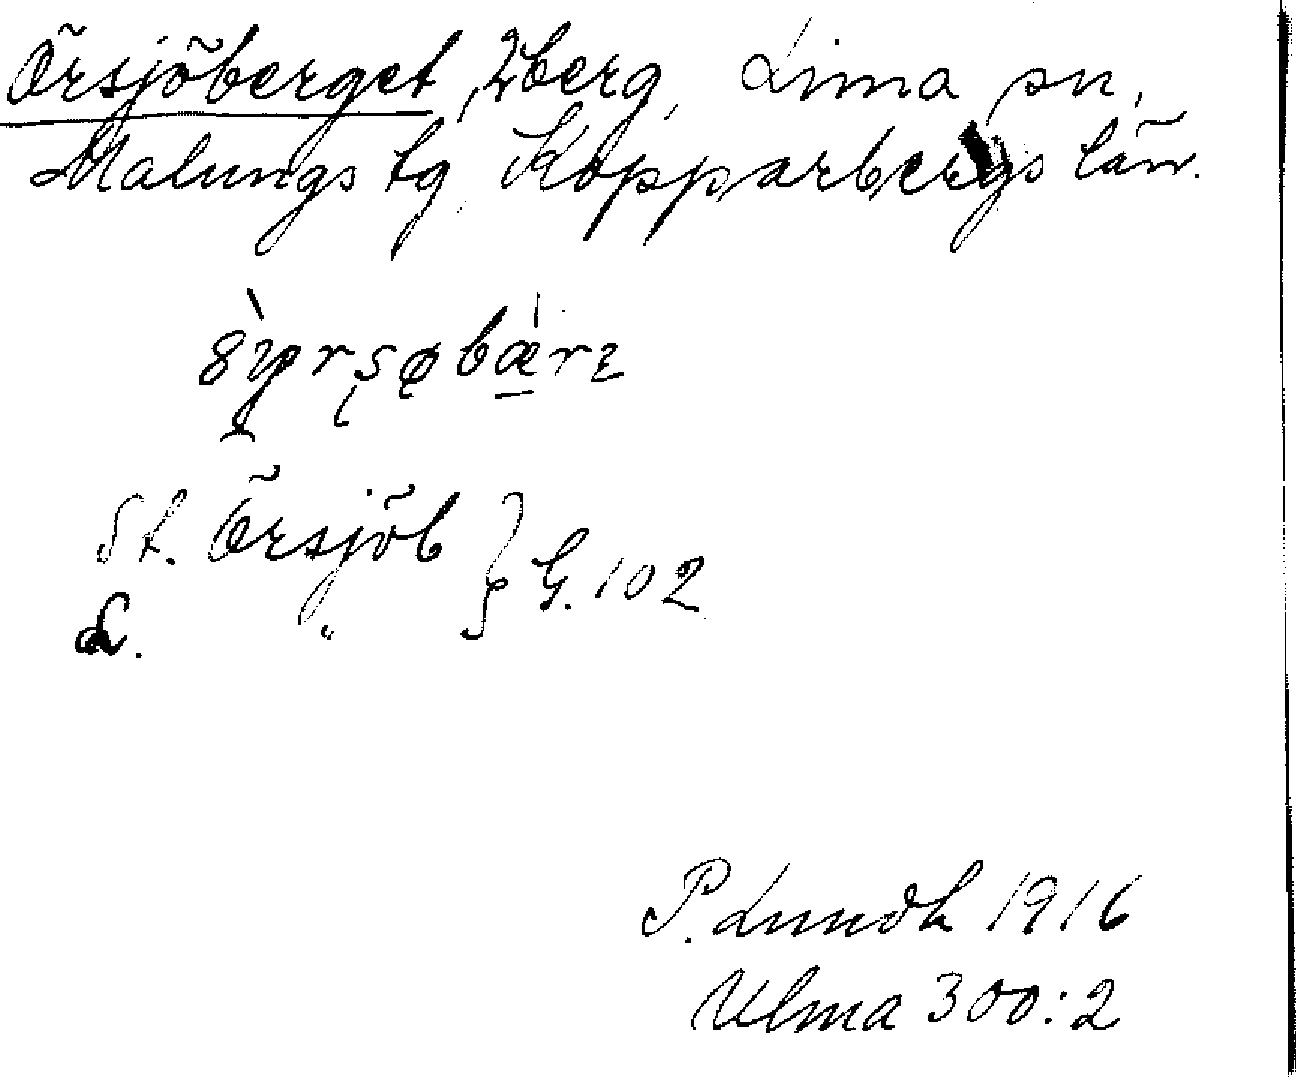 Örsjöberget, 2 berg, Lima sn,
Malungs tg Kopparbergs län.
St. Örsjöb } G. 102
L. "
P. Lundh 1916
Ulma 300:2